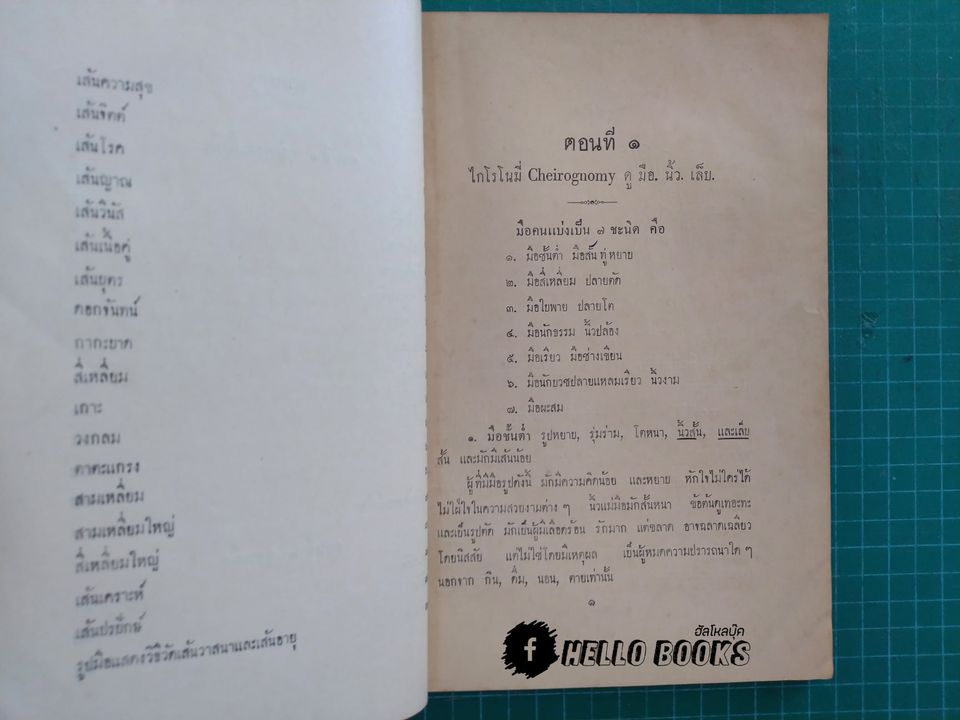 เส้นความสุข
เส้นจิตต์
เส้นโรค
เส้นญาณ
เส้นวินัส
เส้นเนื้อคู่
เส้นบุตร
ดอกจันทน์
กากะบาด
สี่เหลี่ยม
เกาะ
วงกลม
ตาตะแกรง
สามเหลี่ยม
สามเหลี่ยมใหญ่
สี่เหลี่ยมใหญ่
เส้นเคราะห์
เส้นปรปักษ์
รูปมือแสดงวิธีวัดเส้นวาสนาและเส้นอายุ
ตอนที่ ๑
ไกโรโนมี่ Cheirognomy ดู มือ. นิ้ว. เล็บ.
มือคนแบ่งเป็น ๗ ชะนิด คือ
๑. มือชั้นต่ำ มือสั้นทู่หยาบ
๒. มือสี่เหลี่ยม ปลายตัด
๓. มือใบพาย ปลายโต
๔. มือนักธรรม นิ้วปล้อง
๕. มือเรียว มือช่างเขียน
๖. มือนักบวชปลายแหลมเรียว นิ้วงาม
๗. มือผะสม
๑. มือชั้นต่ำ รูปหยาบ, รุ่มร่าม, โตหนา, นิ้วสั้น, และเล็บ
สั้น และมักมีเส้นน้อย
ผู้ที่มีมือรูปดังนี้ มักมีความคิดน้อย และหยาบ หักใจไม่ใคร่ได้
ไม่ใฝ่ใจในความสวยงามต่าง ๆ นิ้วแม่มือมักสั้นหนา ข้อต้นดูเทอะทะ
และเป็นรูปตัด มักเป็นผู้มีเลือดร้อน รักมาก แต่ขลาด อาจฉลาดเฉลียว
โดยนิสสัย แต่ไม่ใช่โดยมีเหตุผล เป็นผู้หมดความปรารถนาใด ๆ
นอกจาก กิน, ดื่ม, นอน, ตายเท่านั้น
๑
ฮัลโหลบุ๊ค
f HELLO BOOKS